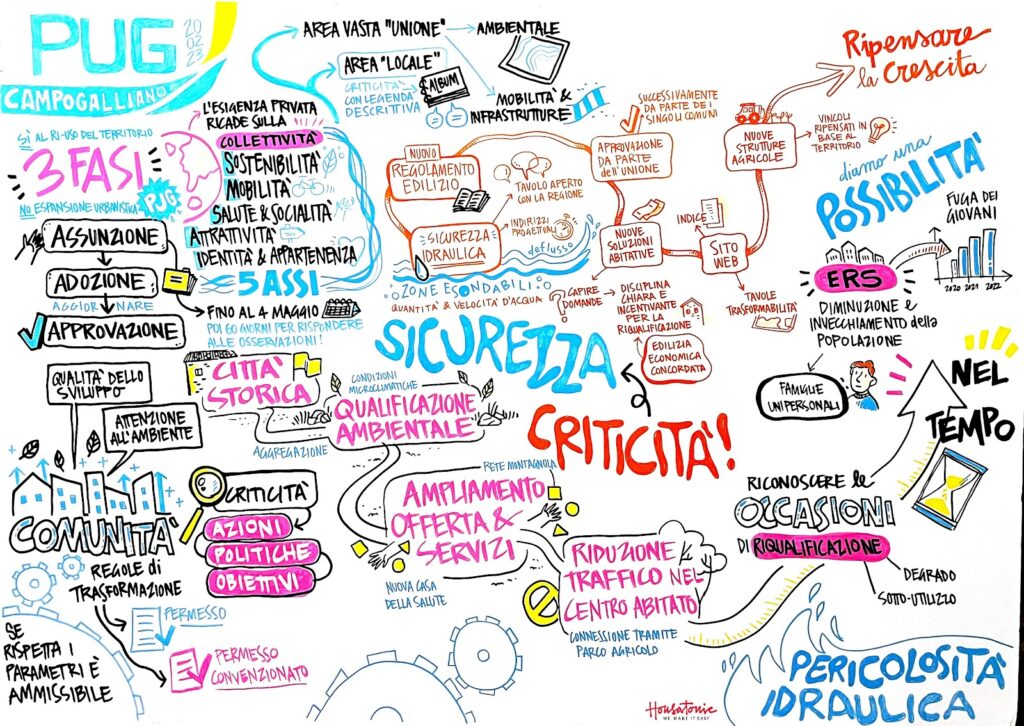 PUG
20
02
23
CAMPOGALLIANO
SÌ AL RI-USO DEL TERRITORIO
3 FASI
NO ESPANSIONE URBANISTICA
PUG
ASSUNZIONE
ADOZIONE
AGGIORNARE
APPROVAZIONE
L'ESIGENZA PRIVATA
RICADE SULLA
COLLETTIVITÀ
SOSTENIBILITÀ
MOBILITÀ
SALUTE & SOCIALITÀ
ATTRATTIVITÀ
IDENTITÀ & APPARTENENZA
5 ASSI
FINO AL 4 MAGGIO
POI 60 GIORNI PER RISPONDERE
ALLE OSSERVAZIONI!
AREA VASTA "UNIONE"
AMBIENTALE
AREA "LOCALE"
CRITICITÀ
CON LEGENDA
DESCRITTIVA
ALBUM
MOBILITÀ &
INFRASTRUTTURE
NUOVO
REGOLAMENTO
EDILIZIO
TAVOLO APERTO
CON LA REGIONE
SICUREZZA
IDRAULICA
INDIRIZZI
PROGETTUALI
deflusso
ZONE ESONDABILI
QUANTITÀ & VELOCITÀ D'ACQUA
APPROVAZIONE
DA PARTE
dell'UNIONE
SUCCESSIVAMENTE
DA PARTE DEI
SINGOLI COMUNI
NUOVE
SOLUZIONI
ABITATIVE
INDICE
SITO
WEB
TAVOLE
TRASFORMABILITÀ
NUOVE
STRUTTURE
AGRICOLE
VINCOLI
RIPENSATI IN
BASE AL
TERRITORIO
Ripensare
la Crescita
CAPIRE
DOMANDE
?
DISCIPLINA
CHIARA E
INCENTIVANTE
PER LA
RIQUALIFICAZIONE
EDILIZIA
ECONOMICA
CONCORDATA
SICUREZZA
CRITICITÀ!
diamo una
POSSIBILITÀ
FUGA DEI
GIOVANI
2020 2021 2022
ERS
DIMINUZIONE E
INVECCHIAMENTO della
POPOLAZIONE
FAMIGLIE
UNIPERSONALI
NEL
TEMPO
RICONOSCERE le
OCCASIONI
DI RIQUALIFICAZIONE
DEGRADO
SOTTO-UTILIZZO
PERICOLOSITÀ
IDRAULICA
QUALITÀ DELLO
SVILUPPO
ATTENZIONE
ALL'AMBIENTE
COMUNITÀ
REGOLE di
TRASFORMAZIONE
PERMESSO
PERMESSO
CONVENZIONATO
SE
RISPETTA I
PARAMETRI È
AMMISSIBILE
CRITICITÀ
AZIONI
POLITICHE
OBIETTIVI
CITTÀ
STORICA
AGGREGAZIONE
CONDIZIONI
MICROCLIMATICHE
QUALIFICAZIONE
AMBIENTALE
RETE MONTAGNOLA
AMPLIAMENTO
OFFERTA &
SERVIZI
NUOVA CASA
DELLA SALUTE
RIDUZIONE
TRAFFICO NEL
CENTRO ABITATO
CONNESSIONE TRAMITE
PARCO AGRICOLO
Housatonic
WE MAKE IT EASY